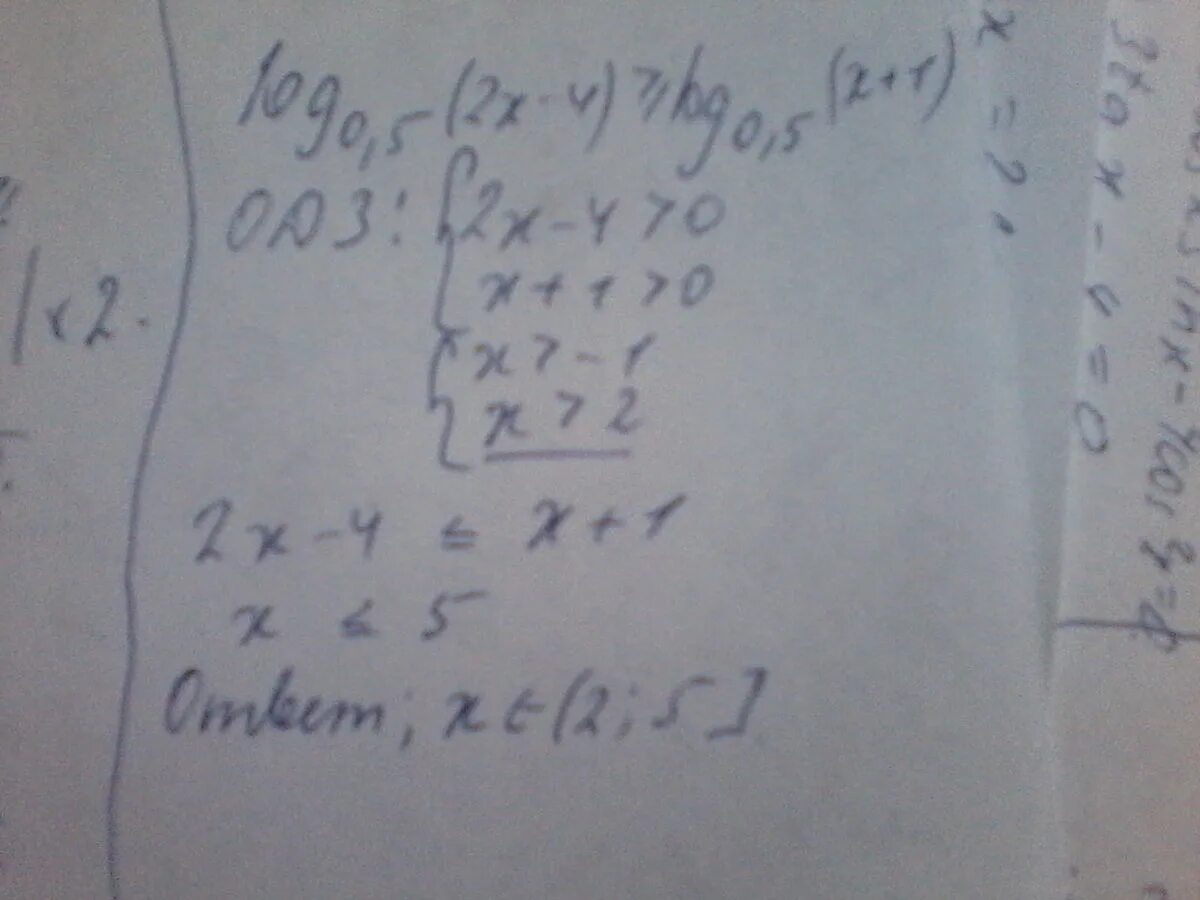 log0,5(2x-4)≥log0,5(x+1)
ОДЗ: {2x-4>0
x+1>0
{x>-1
x>2
2x-4 ≤ x+1
x ≤ 5
Ответ; x∈(2;5]
x = 2
<2.